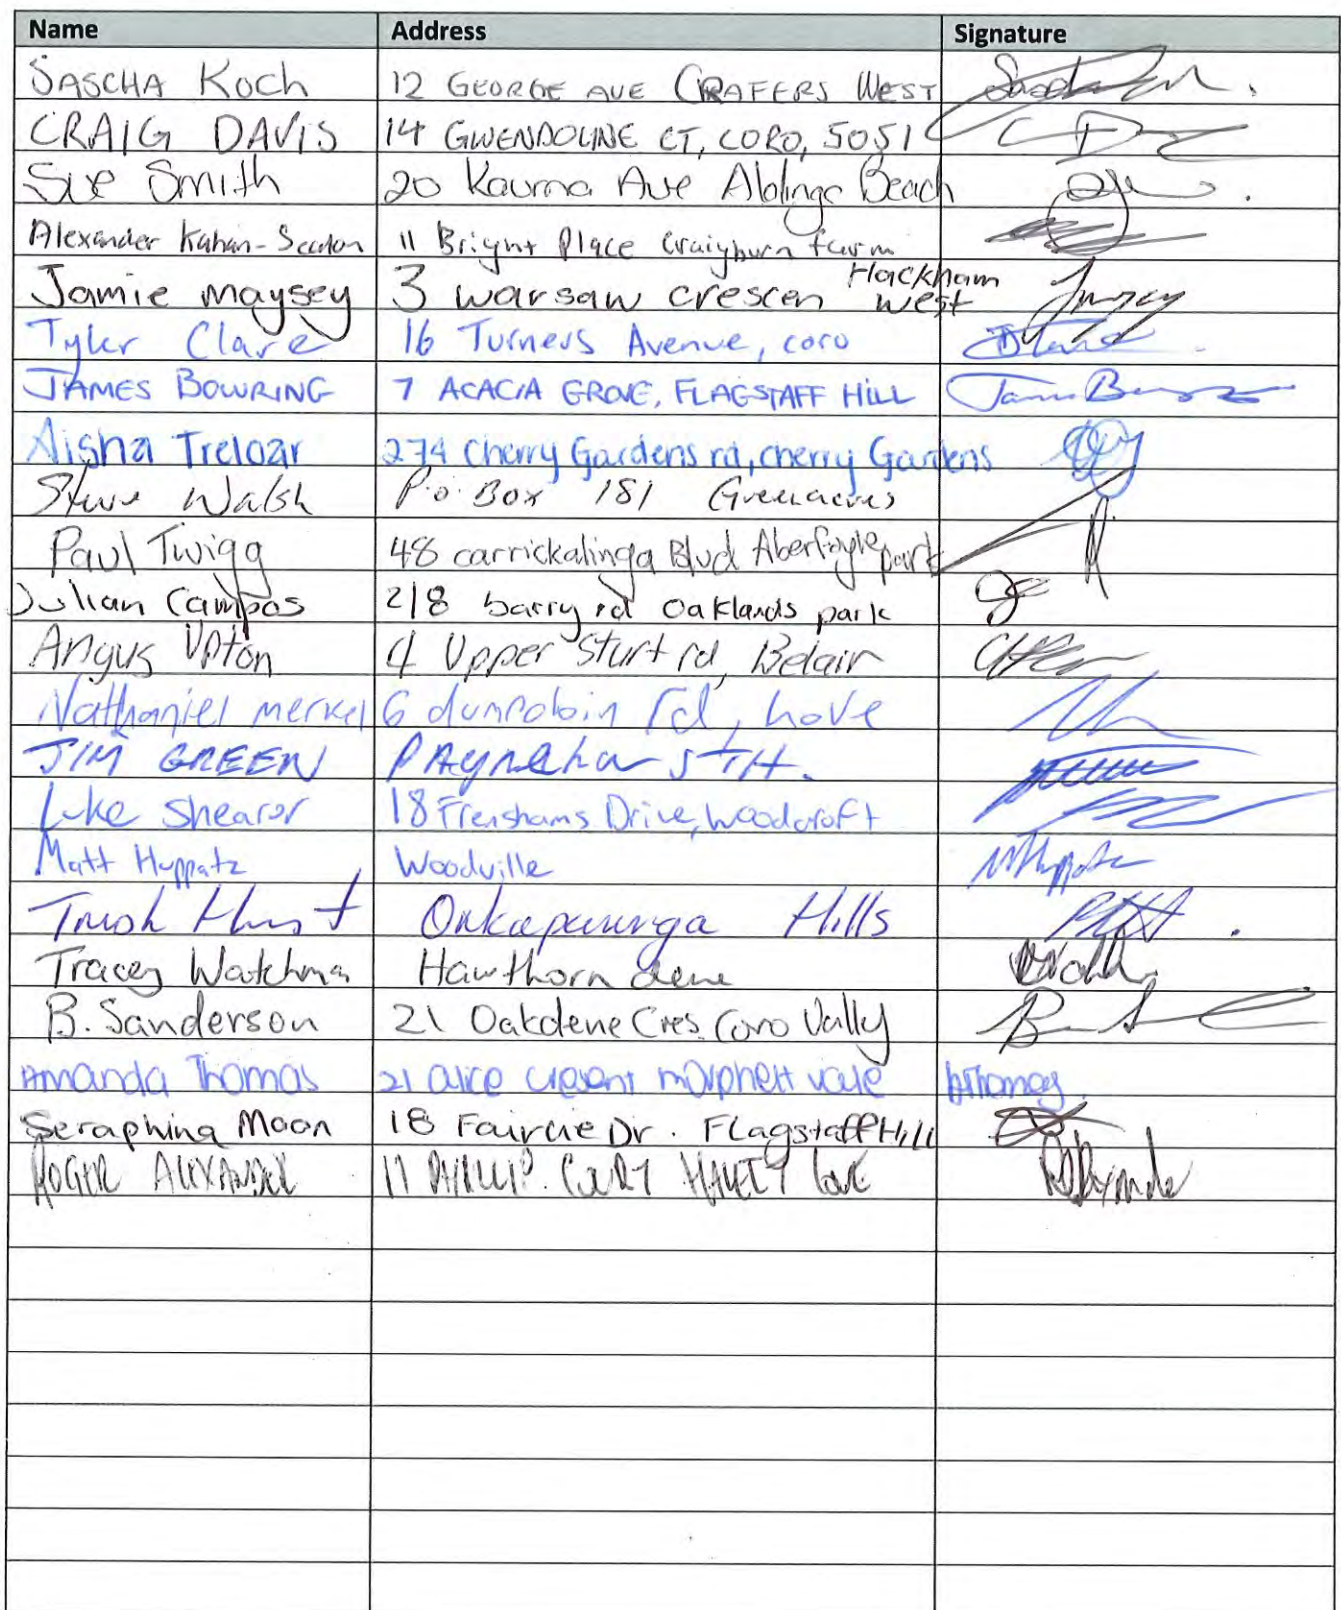 Name Address Signature
SASCHA KOCH 12 GEORGE AVE CRAFERS WEST
CRAIG DAVIS 14 GWENDOLINE CT, CORO, 5051
Sue Smith 20 Kaurna Ave Aldinga Beach
Alexander Kahan- 11 Bright Place Craigburn farm
Jamie maysey 3 warsaw crescen Hackham west
Tyler Clare 16 Turners Avenue, coro
JAMES BOWRING 7 ACACIA GROVE, FLAGSTAFF HILL
Aisha Treloar 274 Cherry Gardens rd, cherry Gardens
Steve Walsh P.O. Box 181 Greenacres
Paul Twigg 48 carrickalinga Blvd Aberfoyle park
Julian Campos 218 barry rd oaklands park
Angus Upton 4 Upper Sturt rd, Belair
Nathaniel merkel 6 dunrobin rd, hove
JIM GREEN PAyneham STH.
Luke Shearer 18 Frenshams Drive, Woodcroft
Matt Huppatz Woodville
Trish Hurst Onkaparinga Hills
Tracey Hawthorn dene
B. Sanderson 21 Oakdene Cres Coro Vally
Amanda Thomas 21 alice cresent morphett vale AThomas.
Seraphina Moon 18 Fairlie Dr. Flagstaff Hill
ROGER ALEXANDER 11 PHILLIP. COURT